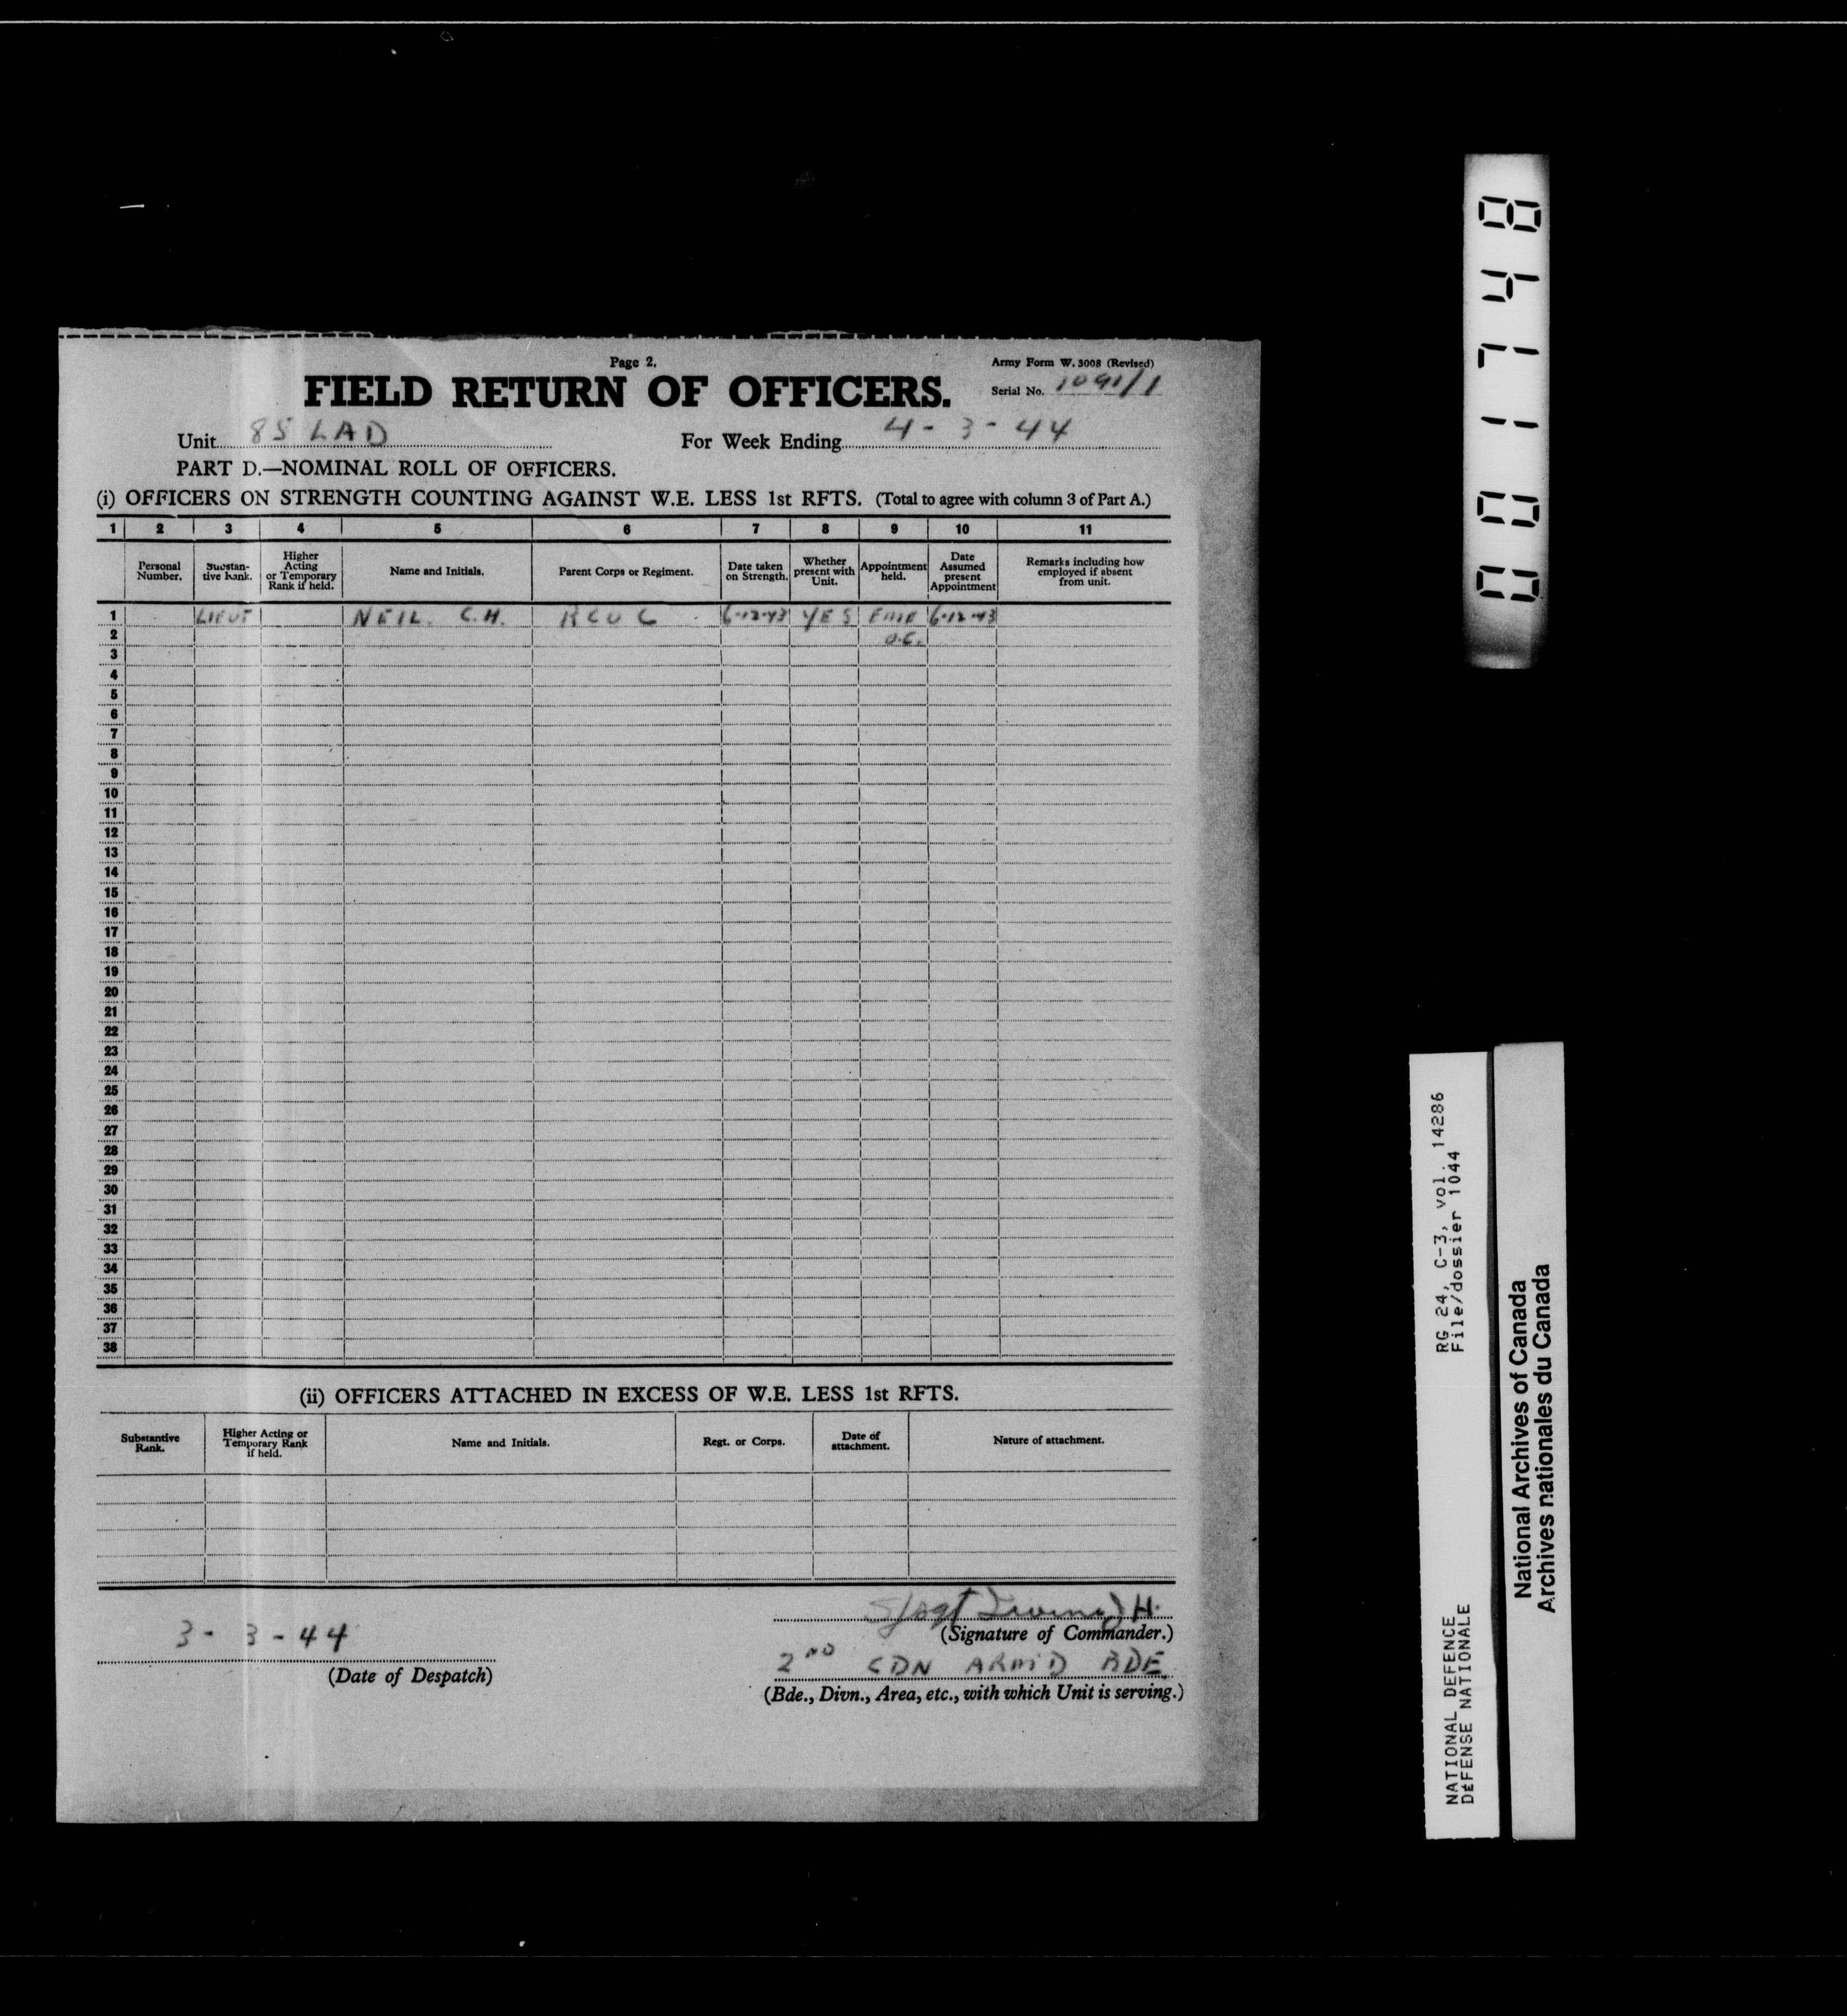 Page 2.
Army Form W. 3008 (Revised)
FIELD RETURN OF OFFICERS.
Serial No. 1091/1
Unit 85 LAD For Week Ending 4-3-44
PART D.—NOMINAL ROLL OF OFFICERS.
(i) OFFICERS ON STRENGTH COUNTING AGAINST W.E. LESS 1st RFTS. (Total to agree with column 3 of Part A.)
1 2 3 4 5 6 7 8 9 10 11
Personal Number. Substan-tive Rank. Higher Acting or Temporary Rank if held. Name and Initials. Parent Corps or Regiment. Date taken on Strength. Whether present with Unit. Appointment held. Date Assumed present Appointment Remarks including how employed if absent from unit.
1 LIEUT NEIL C.H. RCOC 6-12-43 YES EME 6-12-43
2 O.C.
3
4
5
6
7
8
9
10
11
12
13
14
15
16
17
18
19
20
21
22
23
24
25
26
27
28
29
30
31
32
33
34
35
36
37
38
(ii) OFFICERS ATTACHED IN EXCESS OF W.E. LESS 1st RFTS.
Substantive Rank. Higher Acting or Temporary Rank if held. Name and Initials. Regt. or Corps. Date of attachment. Nature of attachment.
H.
(Signature of Commander.)
3-3-44
(Date of Despatch)
2ND CDN ARM'D BDE.
(Bde., Divn., Area, etc., with which Unit is serving.)
001748
RG 24, C-3, vol. 14286
File/dossier 1044
NATIONAL DEFENCE
DÉFENSE NATIONALE
National Archives of Canada
Archives nationales du Canada